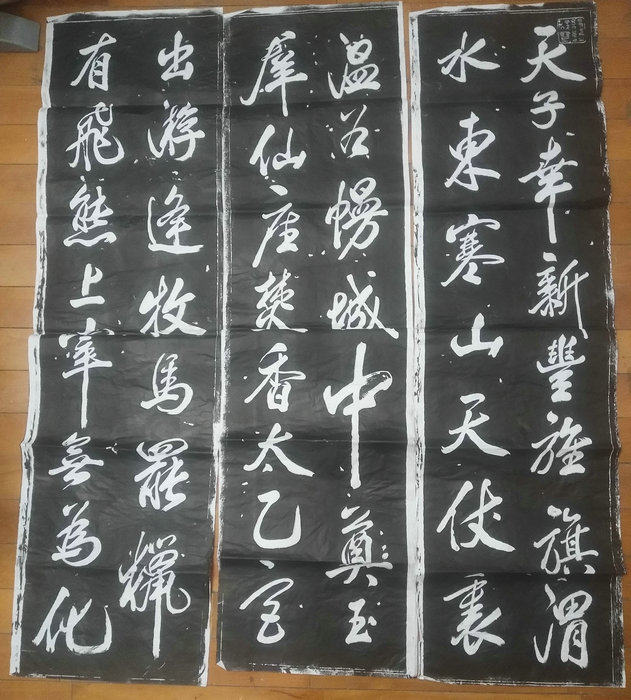 天子幸新豐旌旗渭
水東寒山天仗裏
溫谷幔城中奠玉
羣仙座焚香太乙宫
出游逢牧馬罷獵
有飛熊上宰無為化